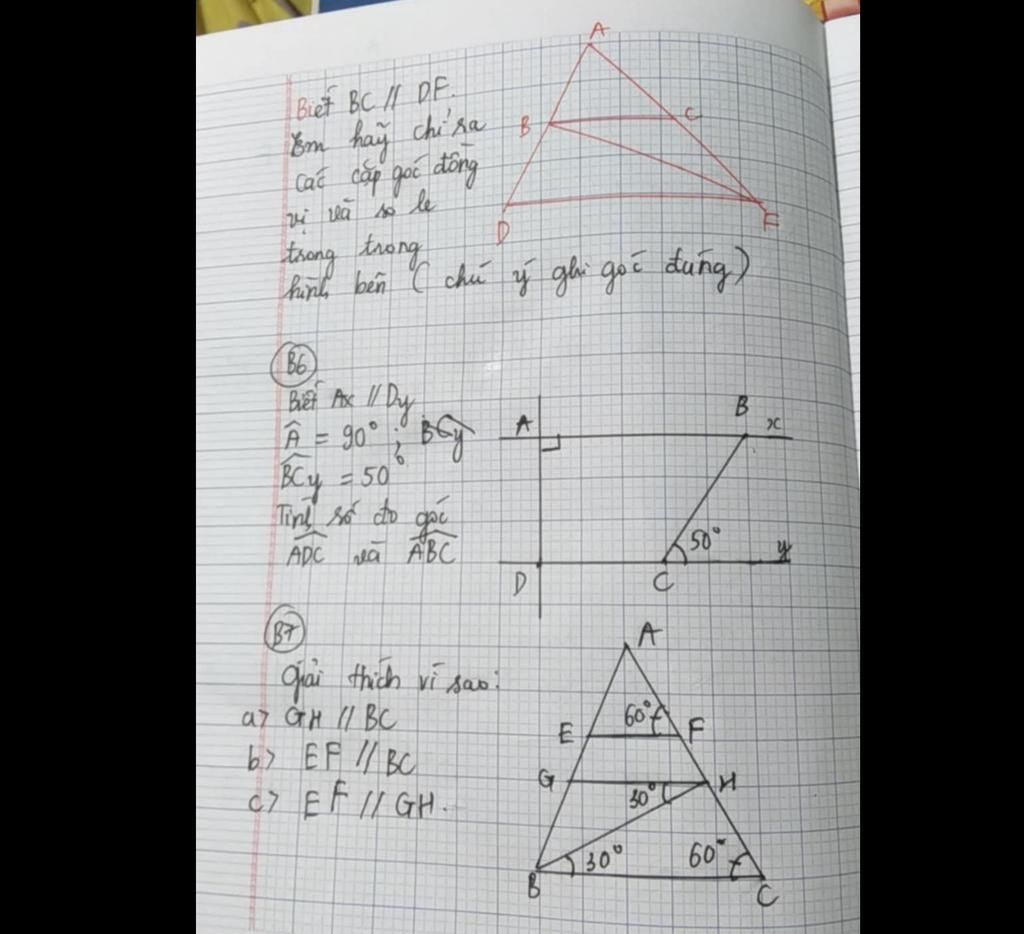 A
Biết BC // DF.
Em hãy chỉ ra
B
C
các cặp góc đồng
vị và so le
D
F
trong trong
hình bên ( chú ý ghi góc đúng )
B6
Biết Ax // Dy
A
B
x
Â = 90° ; BCy
BCy = 50°
Tính số đo góc
50°
ADC và ABC
y
D
C
B7
A
Giải thích vì sao:
a> GH // BC
60°
E
F
b> EF // BC
G
H
c> EF // GH.
30°
30°
60°
B
C